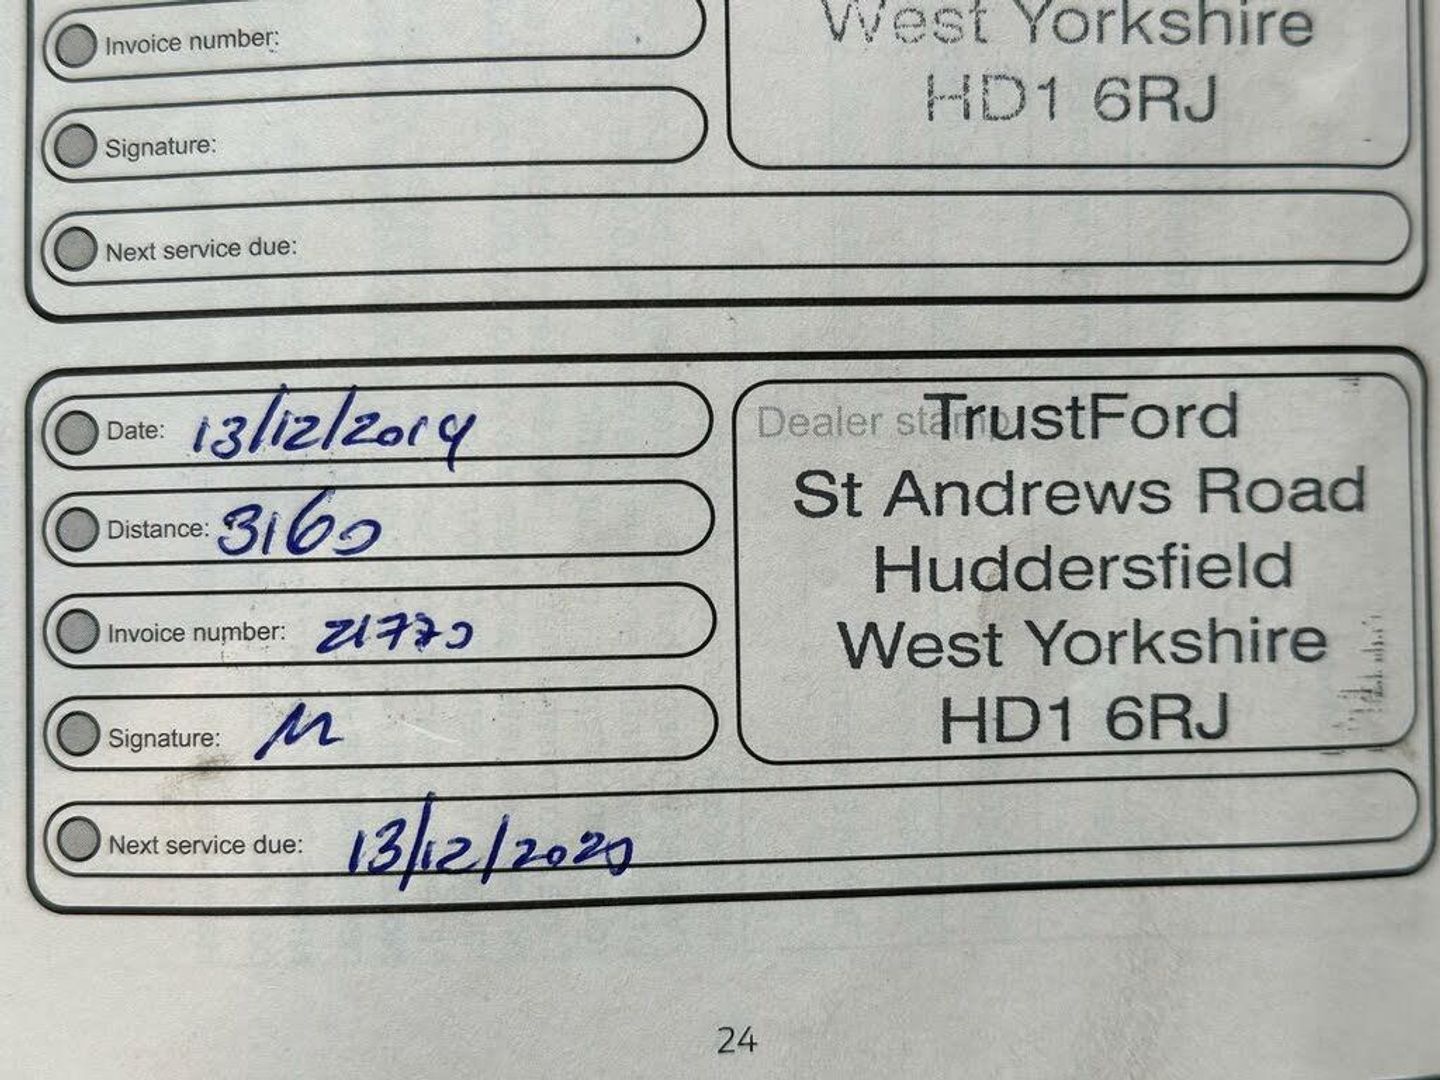 West Yorkshire
Invoice number:
HD1 6RJ
Signature:
Next service due:
Date: 13/12/2019
Dealer stamp
TrustFord
St Andrews Road
Distance: 3160
Huddersfield
Invoice number: 21770
West Yorkshire
Signature:
HD1 6RJ
Next service due: 13/12/2020
24